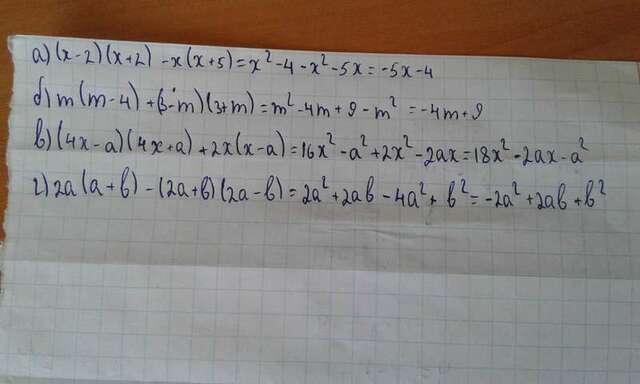 а) (x-2)(x+2) - x(x+5) = x² - 4 - x² - 5x = -5x - 4
б) m(m-4) + (3-m)(3+m) = m² - 4m + 9 - m² = -4m + 9
в) (4x-a)(4x+a) + 2x(x-a) = 16x² - a² + 2x² - 2ax = 18x² - 2ax - a²
г) 2a(a+b) - (2a+b)(2a-b) = 2a² + 2ab - 4a² + b² = -2a² + 2ab + b²